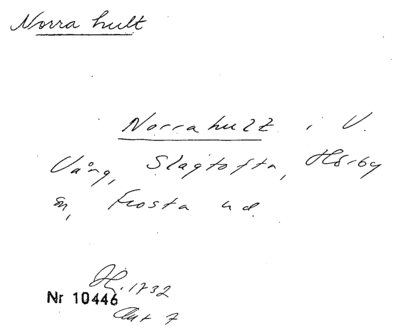 Norra hult
Norrahult i V.
Vång, Slagtofta, Hörby
sn, Frosta hd.
Hj. 1732
Nr 10446
Akt 7